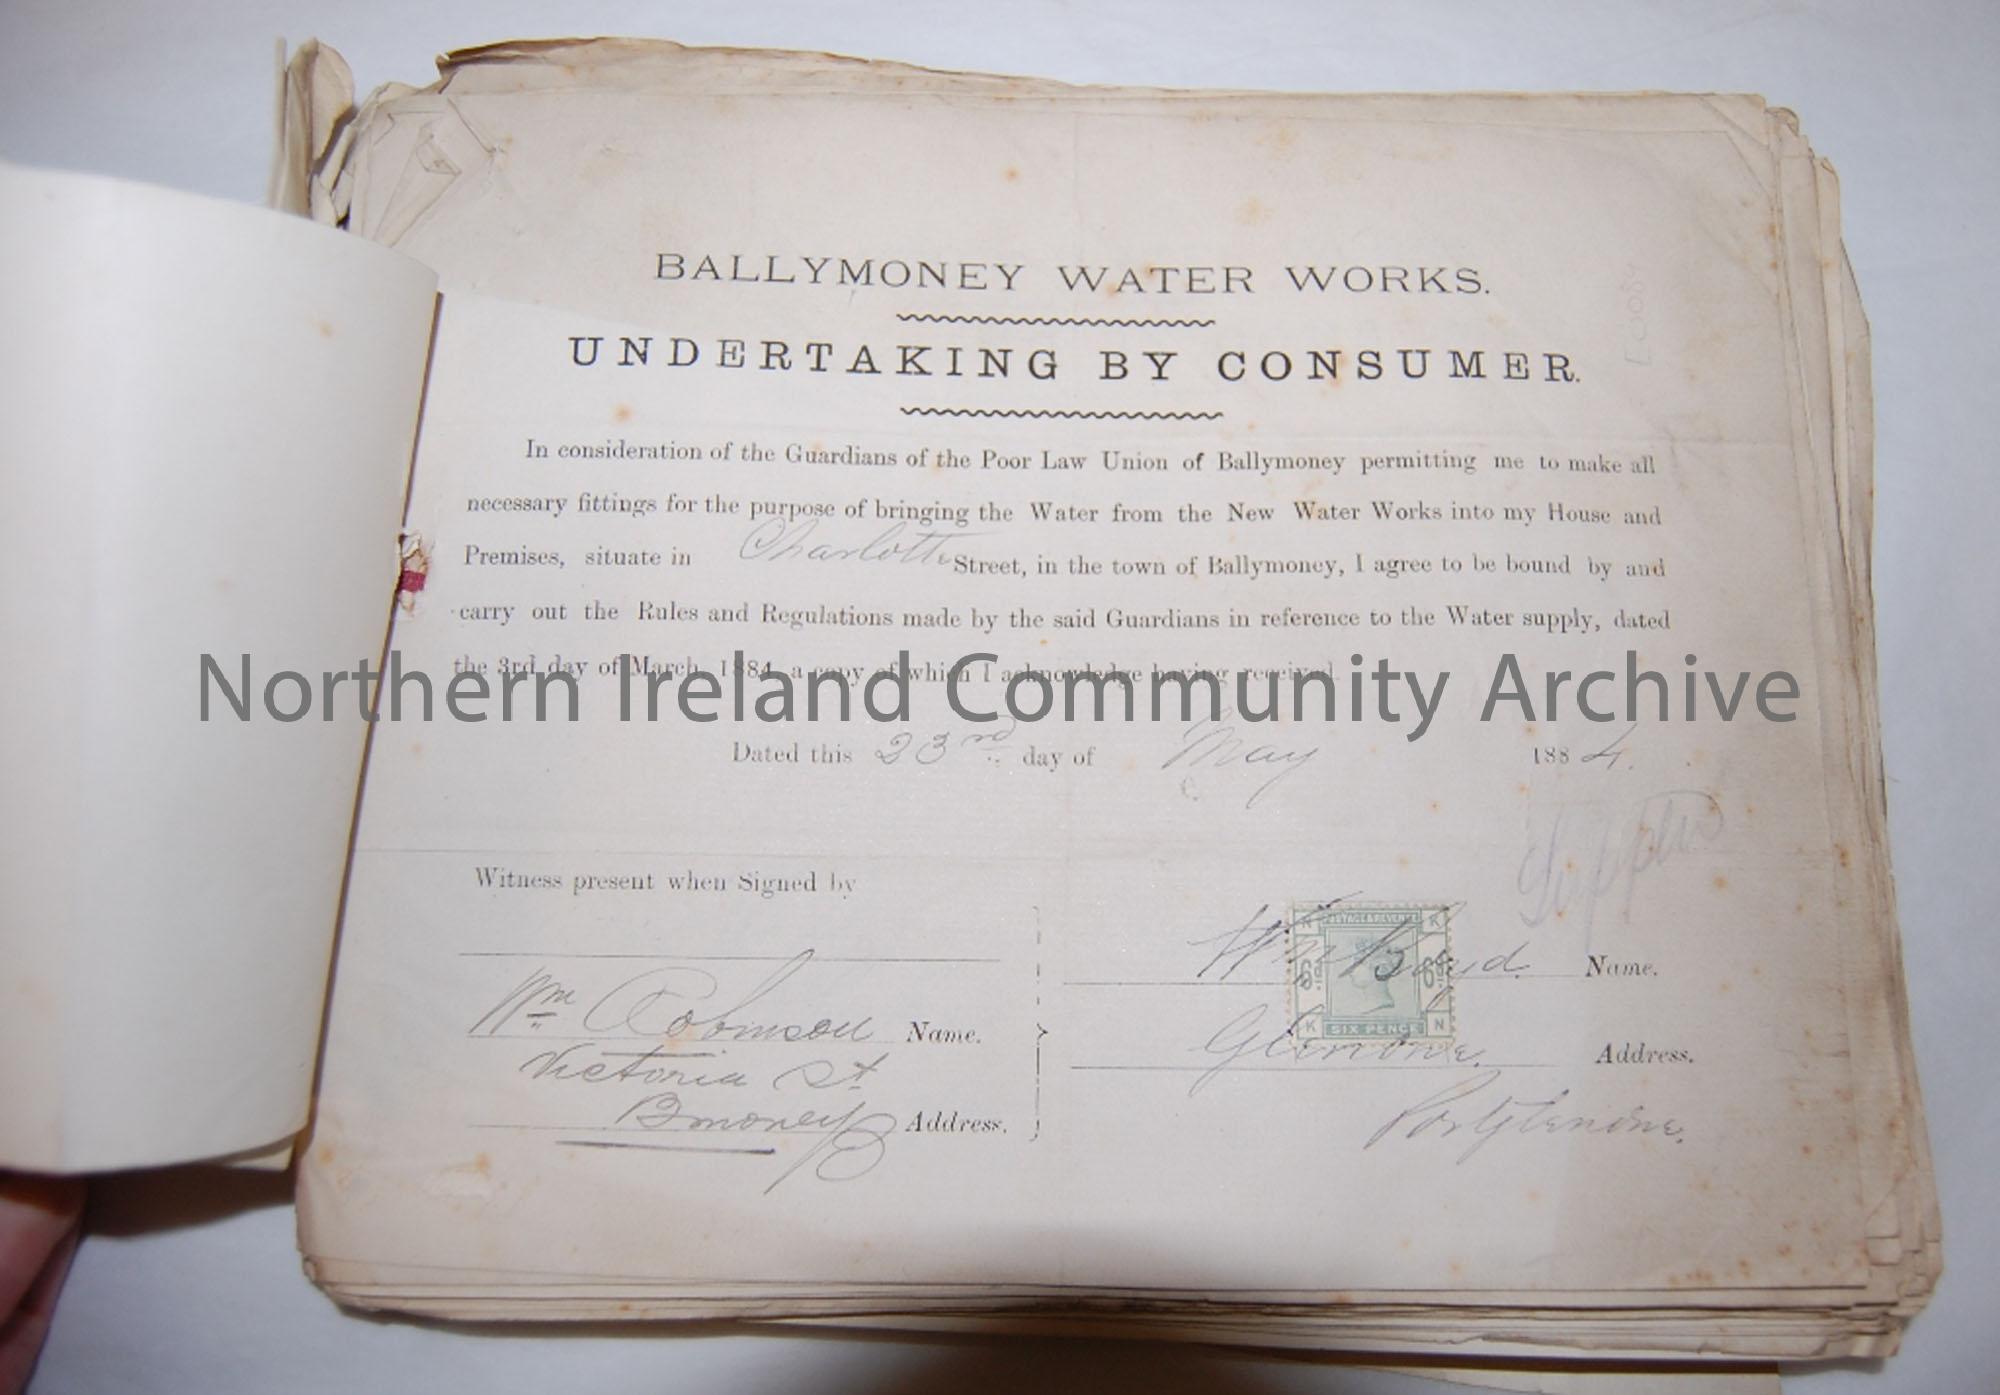 BALLYMONEY WATER WORKS.
UNDERTAKING BY CONSUMER.
In consideration of the Guardians of the Poor Law Union of Ballymoney permitting me to make all
necessary fittings for the purpose of bringing the Water from the New Water Works into my House and
Premises, situate in Charlotte Street, in the town of Ballymoney, I agree to be bound by and
carry out the Rules and Regulations made by the said Guardians in reference to the Water supply, dated
the 3rd day of March, 1884, a copy of which I acknowledge having received.
Northern Ireland Community Archive
Dated this 23rd day of May 1884.
Witness present when Signed by
Wm Robinson Name.
Victoria St
Bmoney Address.
N POSTAGE & REVENUE K
6d 6d
K SIX PENCE N
Wm Boyd. Name.
Glenone. Address.
Portglenone.